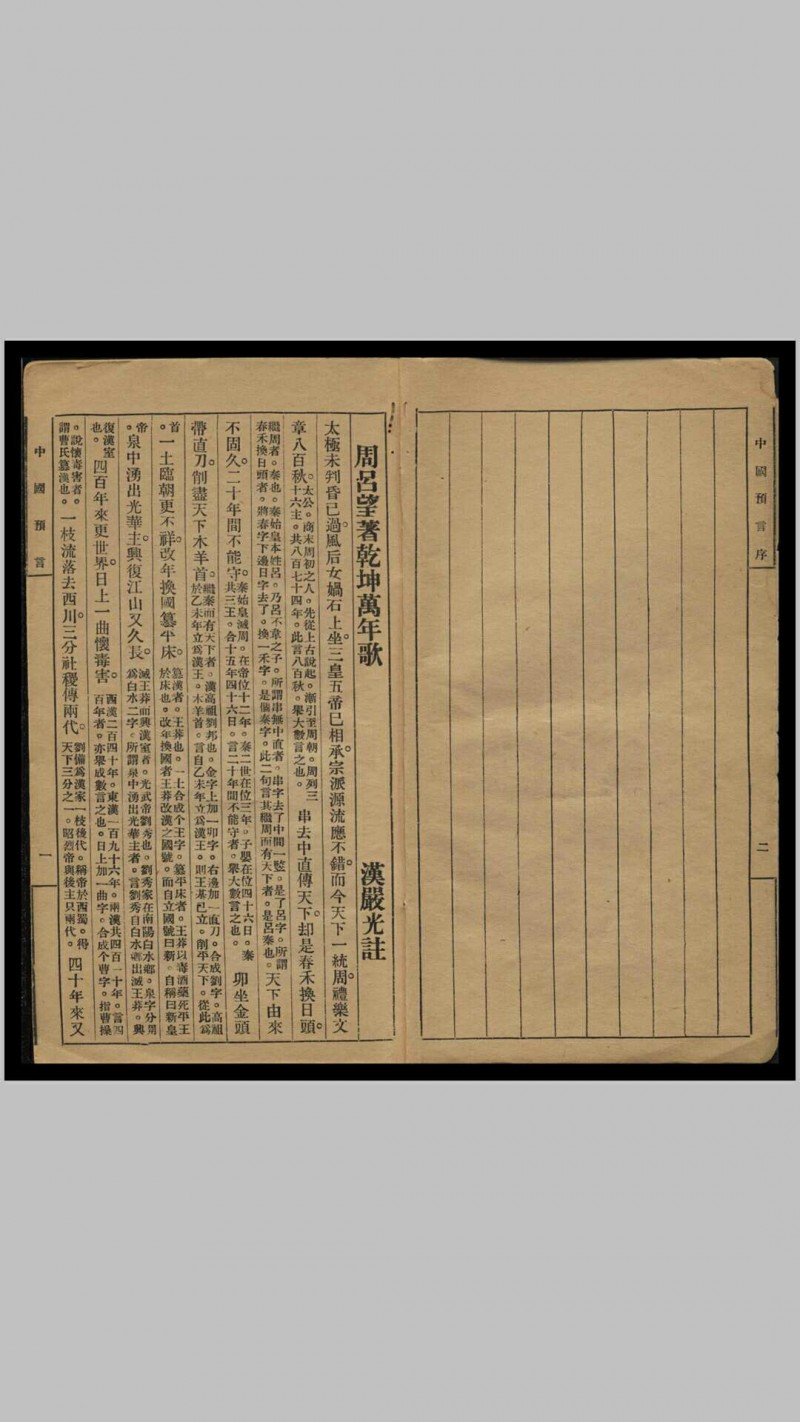 中國預言序
二
周呂望著乾坤萬年歌 漢嚴光註
太極未判昏已過。風后女媧石上坐。三皇五帝已相承。宗派源流應不錯。而今天下一統周。禮樂文
章八百秋。太公。商末周初之人。先從上古說起。漸引至周朝。周列三十六主。共八百七十四年。此言八百秋。舉大數言之也。串去中直傳天下。却是春禾換日頭。
繼周者。秦也。秦始皇本姓呂。乃呂不韋之子。所謂串無中直者。串字去了中間一竪。是了呂字。所謂春禾換日頭者。將春字下邊日字去了。換一禾字。是個秦字。此二句言其繼周而有天下者。是呂秦也。天下由來
不固久。二十年間不能守。秦始皇滅周。在帝位十二年。秦二世在位三年。子嬰在位四十六日。秦共三王。合十五年四十六日。言二十年間不能守者。舉大數言之也。卯坐金頭
帶直刀。削盡天下木羊首。繼秦而有天下者。漢高祖劉邦也。金字上加一卯字。右邊加一直刀。合成劉字。高祖於乙未年立爲漢王。木羊首。言自乙未年立爲漢王。則王基已立。削平天下。從此爲
首。一土臨朝更不祥。改年換國篡平床。篡漢者。王莽也。一土合成个王字。篡平床者。王莽以毒酒藥死平王於床也。改年換國者王莽改漢之國號。而自立國號曰新。自稱曰新皇
帝。泉中湧出光華主。興復江山又久長。滅王莽而興漢室者。光武帝劉秀也。劉秀家在南陽白水鄉。泉字分開爲白水二字。所謂泉中湧出光華主者。言劉秀自白水鄉出滅王莽。興
復漢室也。四百年來更世界。日上一曲懷毒害。西漢二百四十年。東漢一百九十六年。兩漢共四百一十年。言四百年者。亦舉成數言之也。日上加一曲字。合成个曹字。指曹操
。說懷毒害者。謂曹氏篡漢也。一枝流落去西川。三分社稷傳兩代。劉備爲漢家一枝後代。稱帝於西蜀。得天下三分之一。昭烈帝與後主只兩代。四十年來又
中國預言
一